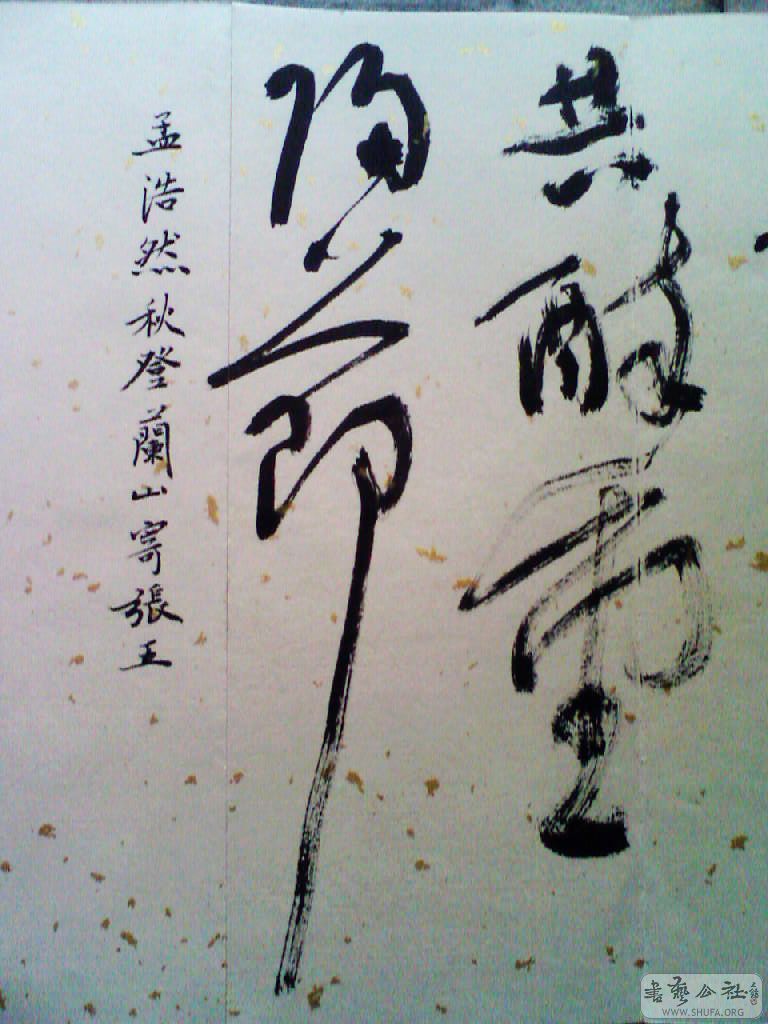 共醉重
陽節
孟浩然秋登蘭山寄張五
書藝公社
WWW.SHUFA.ORG